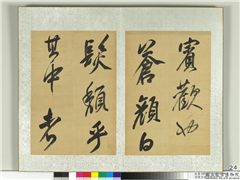 賓歡也
蒼顏白
髮頹乎
其中者
24